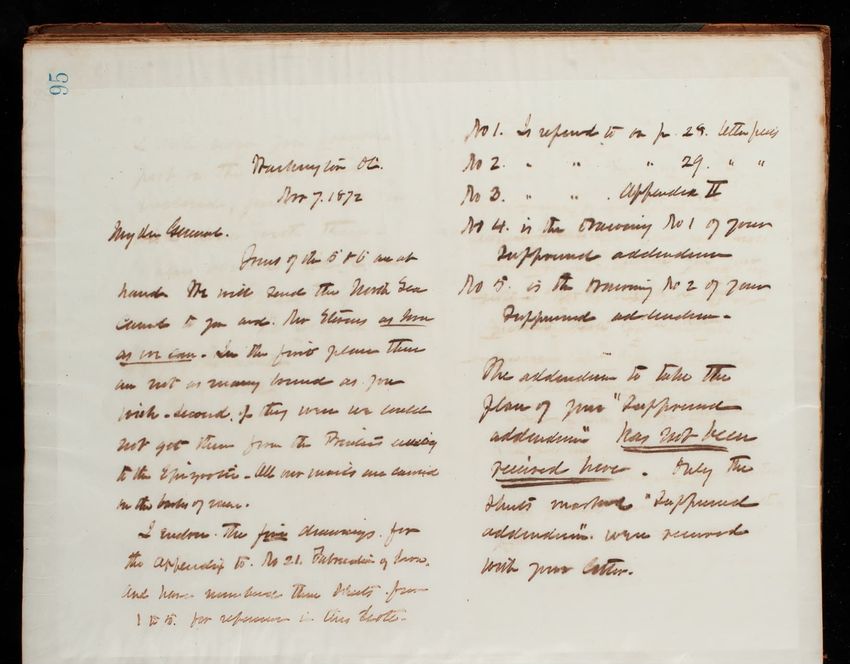 95
Washington DC.
Nov 7. 1872
My dear General.
Yours of the 5 & 6 are at
hand. We will send the North Sea
Canal to you and Mr Stevens as soon
as we can. In the first place there
are not as many bound as you
wish. Second, if they were we could
not get them from the Printers owing
to the Epizootic. All our mails are carried
on the backs of men.
I enclose the five drawings for
the Appendix to No 21. Fabrication of Iron.
and have numbered these sheets from
1 to 5. for reference in this letter.
No 1. Is referred to on p. 29. letter press
No 2. " " " 29. " "
No 3. " " . Appendix II
No 4. is the drawing No 1 of your
suppressed addendum
No 5. is the drawing No 2 of your
suppressed addendum.
The addendum to take the
place of your "suppressed
addendum" has not been
received here. Only the
sheets marked "suppressed
addendum" were received
with your letter.